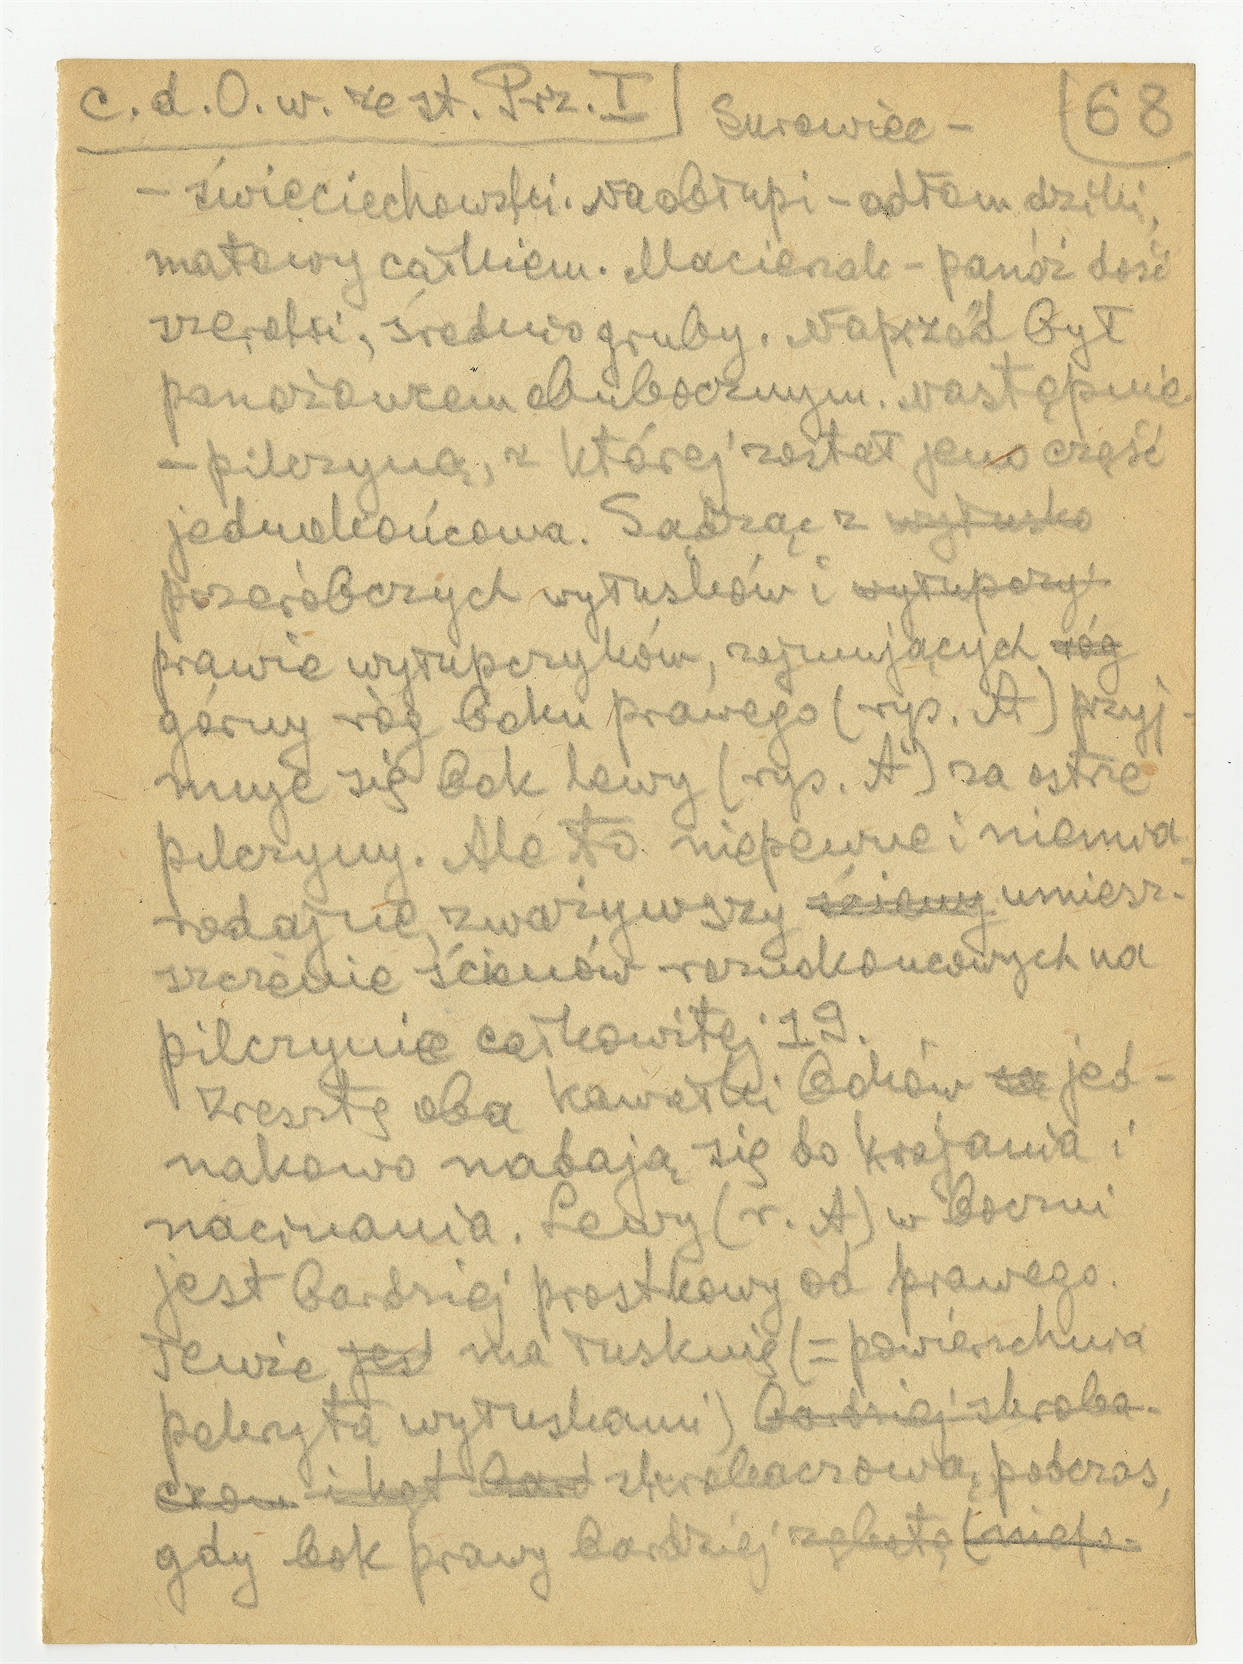 c. d. O. w. zest. Prz. I Surowiec - 68
- świeciechowski. Na obłupi - odłam dziki,
matowy całkiem. Macierzak - panóż dość
szeroki, średnio gruby. Naprzód był
panożowcem obubocznym. Następnie
- pilczyną, z której został jeno część
jednokońcowa. Sądząc z wyłusko
przeróbczych wyłusków i wyłupczy
prawie wyłupczyków, zajmujących róg
górny róg boku prawego (rys. A) przyj-
muje się bok lewy (rys. A) za ostrze
pilczyny. Ale to niepewne i niemia-
rodajne, zważywszy ściany umiesz-
szczenie ścianów roznokoncowych na
pilczynie całkowitej 19.
Zresztą oba kawałki boków są jed-
nakowo nadają się do krajania i
nacinania. Lewy (r. A) w boczni
jest bardziej prostkowy od prawego.
Tewże jest ma łusknię (= powierzchnia
pokryta wyłuskami) bardziej skroba-
czow i kąt bard skrobaczową, podczas,
gdy bok prawy bardziej zębatą